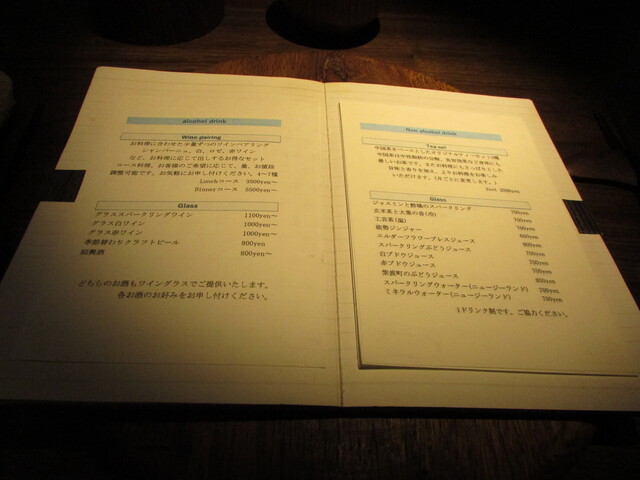 alcohol drink
Wine pairing
お料理に合わせた少量ずつのワインペアリング
シャンパーニュ、白、ロゼ、赤ワイン
など、お料理に応じて出しするお得なセット
コース料理、お客様のご希望に応じて、量、お値段
調整可能です。お気軽にお申し付けください。4~7種
Lunchコース 3500yen~
Dinnerコース 5500yen~
Glass
グラススパークリングワイン 1100yen~
グラス白ワイン 1000yen~
グラス赤ワイン 1000yen~
季節替わりクラフトビール 800yen
紹興酒 800yen~
どちらのお酒もワイングラスでご提供いたします。
各お酒のお好みをお申し付けください。
Non alcohol drink
Tea set
中国茶をベースとしたオリジナルティーセット
いただけます。(月ごとに変更します。)
2500yen
Glass
ジャスミンと のスパークリング 700yen
玄米茶と大葉の香(冷) 700yen
工芸茶(温) 700yen
能勢ジンジャー 700yen
エルダーフラワープレスジュース 600yen
スパークリングぶどうジュース 800yen
白ブドウジュース 700yen
赤ブドウジュース 700yen
紫波町のぶどうジュース 700yen
スパークリングウォーター(ニュージーランド) 700yen
ミネラルウォーター(ニュージーランド) 700yen
1ドリンク制です。ご協力ください。